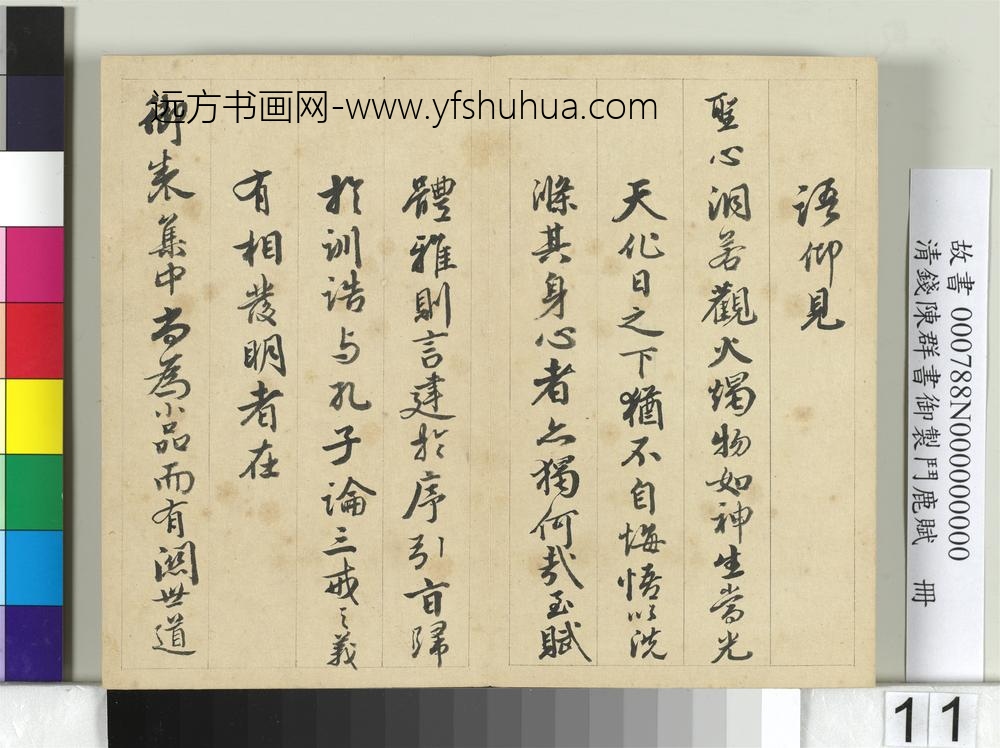 远方书画网-www.yfshuhua.com
語仰見
聖心洞若觀火燭物如神生當光
天化日之下猶不自悔悟以洗
滌其身心者亦獨何哉至賦
體雅則言建於序引旨歸
於訓誥与孔子論三戒之義
有相發明者在
御
集中尚為小品而有關世道
故書 000788N000000000
清錢陳群書御製鬥鹿賦 冊
11